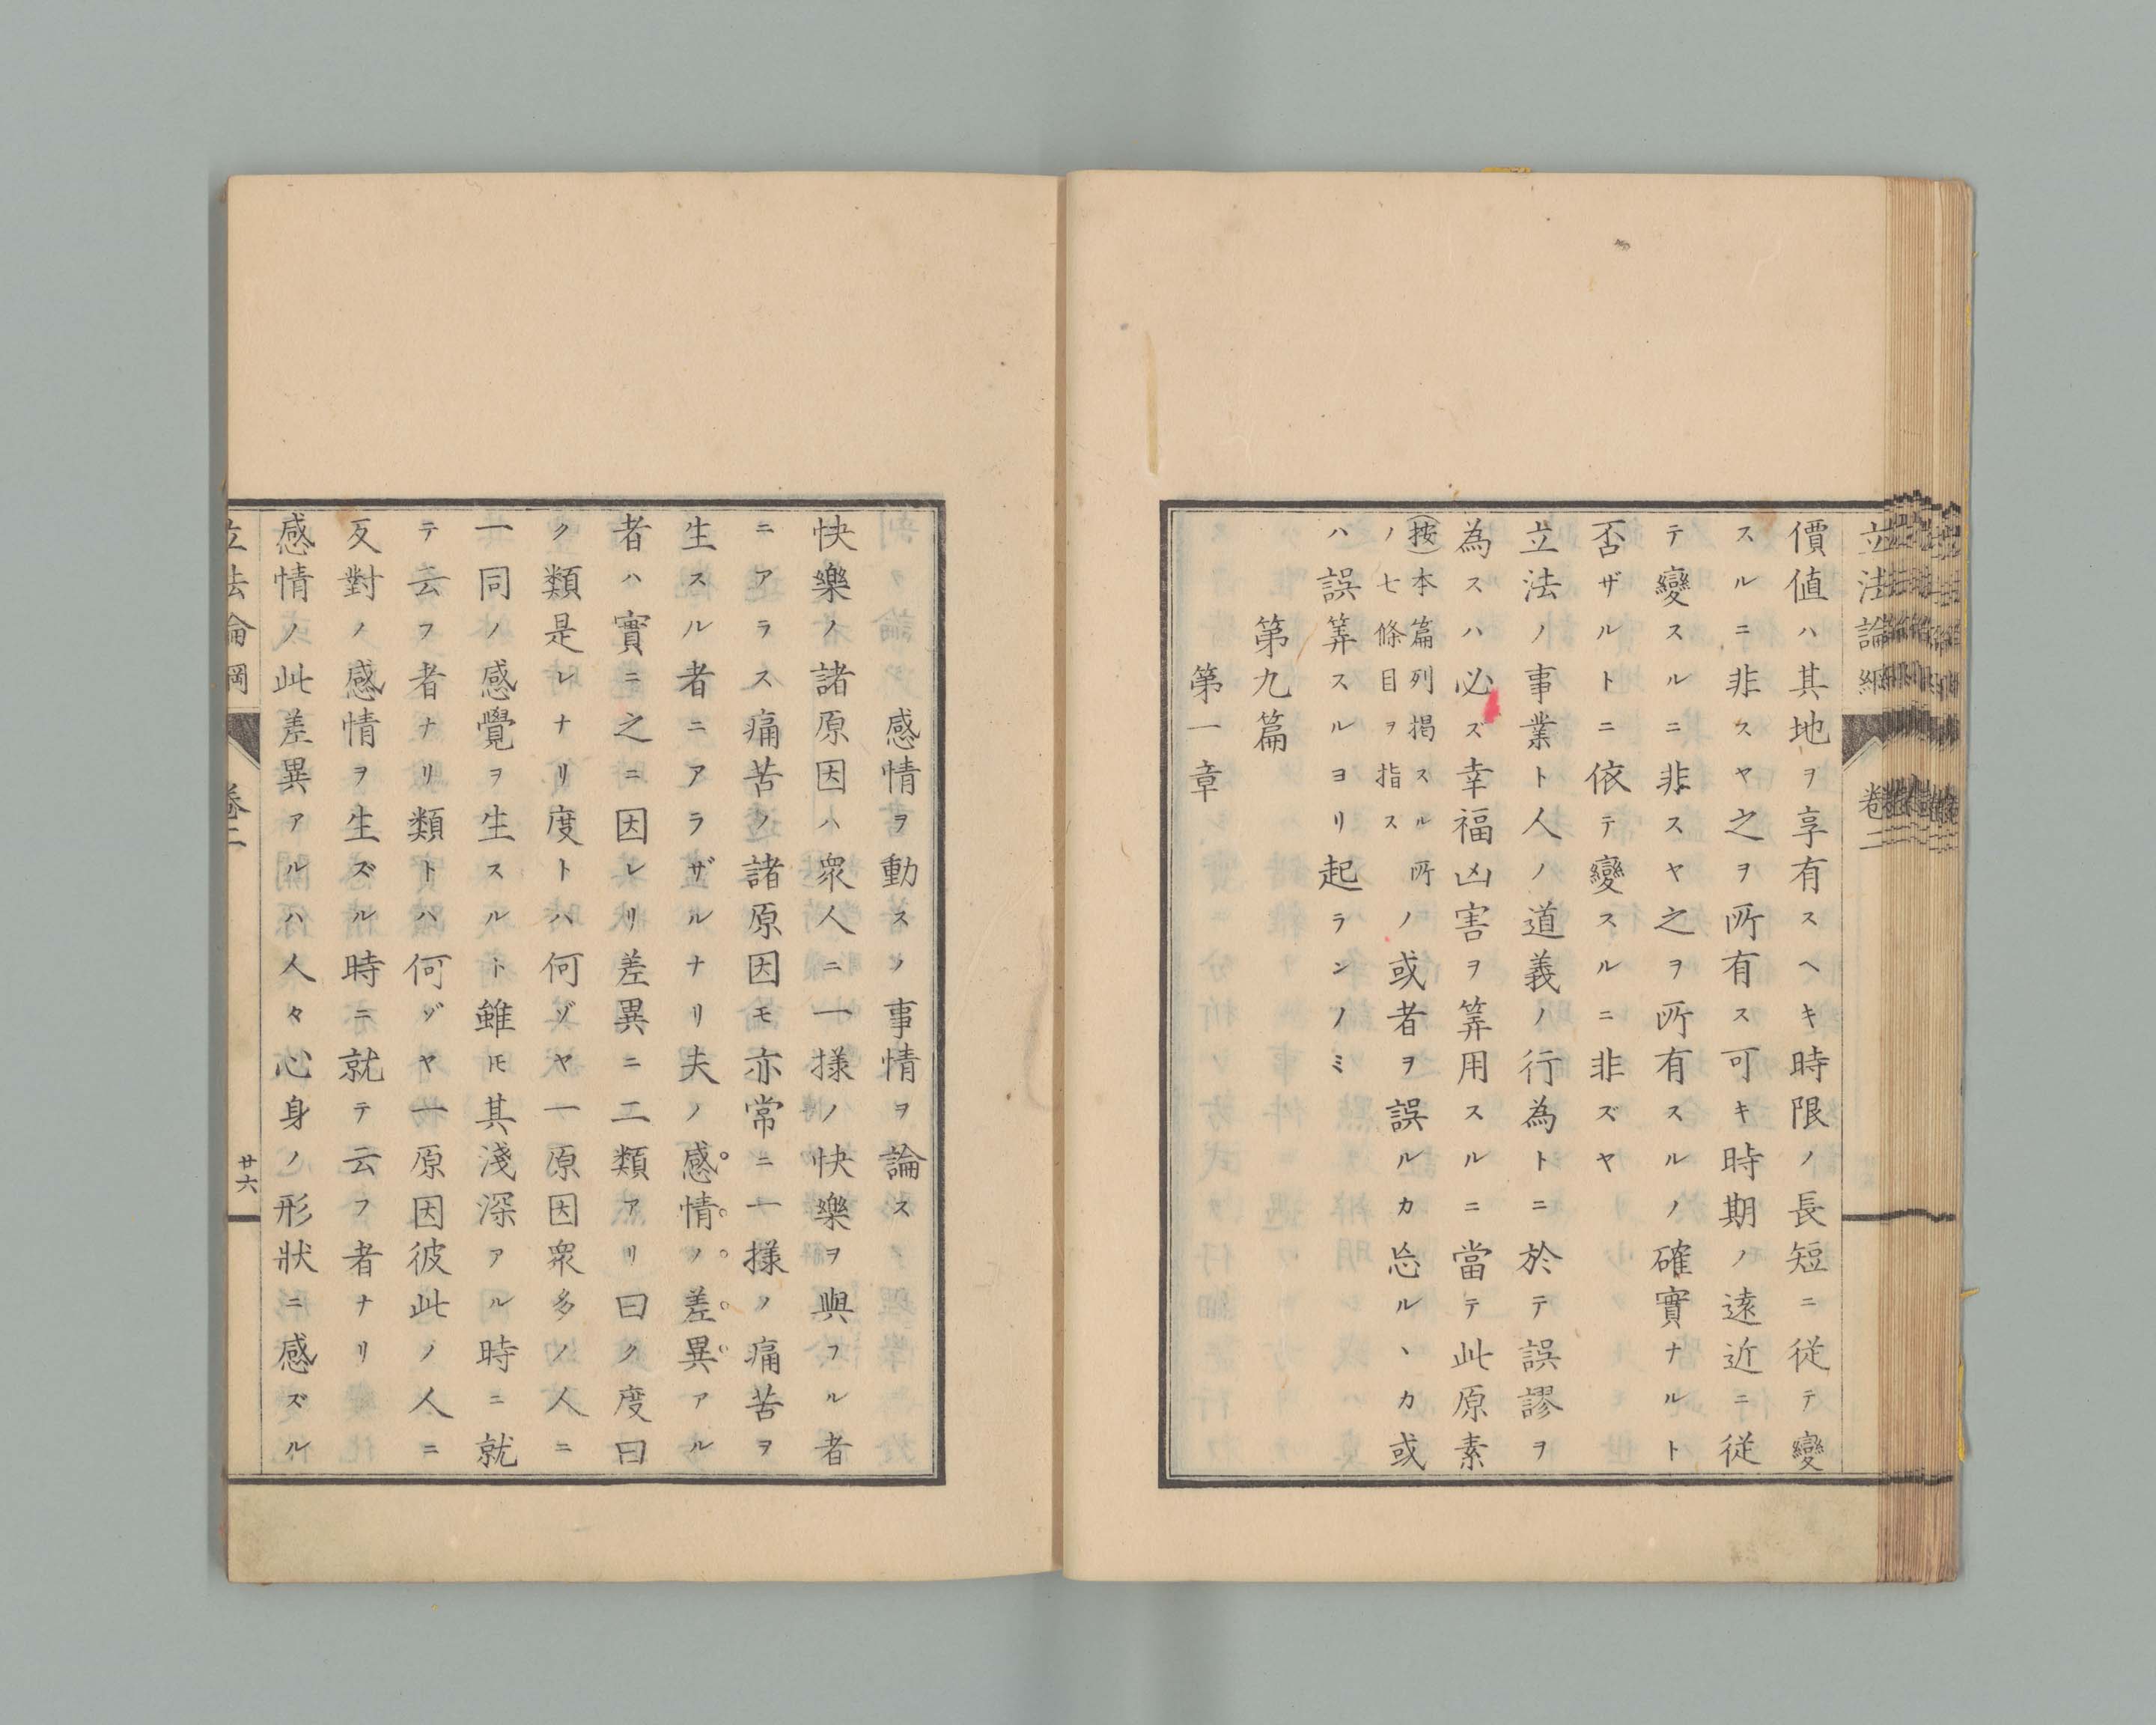 立法論綱 卷二
價値ハ其地ヲ享有スヘキ時限ノ長短ニ從テ變
スルニ非スヤ之ヲ所有ス可キ時期ノ遠近ニ從
テ變スルニ非スヤ之ヲ所有スルノ確實ナルト
否ザルトニ依テ變スルニ非ズヤ
立法ノ事業ト人ノ道義ノ行為トニ於テ誤謬ヲ
為スハ必ズ幸福凶害ヲ筭用スルニ當テ此原素
(按)本篇列揭スル所
ノ七條目ヲ指ス
ノ或者ヲ誤ルカ忘ルヽカ或
ハ誤筭スルヨリ起ランノミ
第九篇
第一章
感情ヲ動スノ事情ヲ論ス
快樂ノ諸原因ハ衆人ニ一樣ノ快樂ヲ與フル者
ニアラス痛苦ノ諸原因モ亦常ニ一樣ノ痛苦ヲ
生スル者ニアラザルナリ夫ノ感情ノ差異アル
者ハ實ニ之ニ因レリ差異ニ二類アリ曰ク度曰
ク類是レナリ度トハ何ゾヤ一原因衆多ノ人ニ
一同ノ感覺ヲ生スルト雖𪜈其淺深アル時ニ就
テ云フ者ナリ類トハ何ゾヤ一原因彼此ノ人ニ
反對ノ感情ヲ生ズル時ニ就テ云フ者ナリ
感情ノ此差異アルハ人々心身ノ形狀ニ感ズル
立法論綱 卷二 廿六